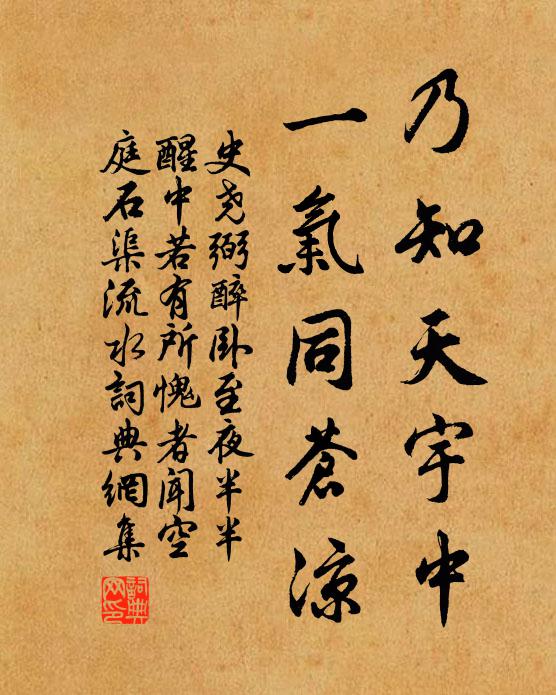 乃知天宇中
一氣同蒼涼
史尧弼醉卧至夜半半
醒中若有所愧者闻空
庭石渠流水詞典網集
詞典網印